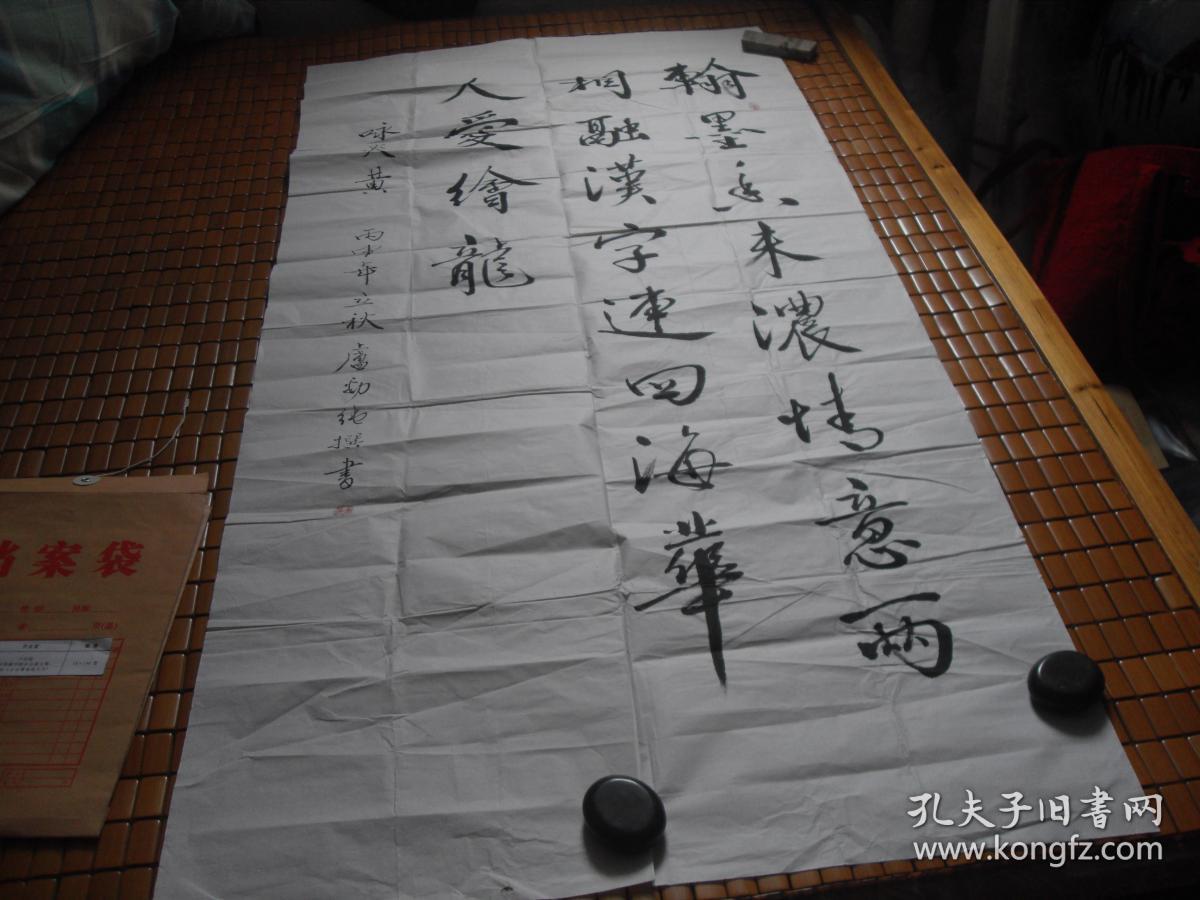 翰墨香未濃情意兩
相融漢字連四海華
人愛繪龍
咏炎黄 丙申年立秋 盧勁撰書
案袋
孔夫子旧書网
www.kongfz.com